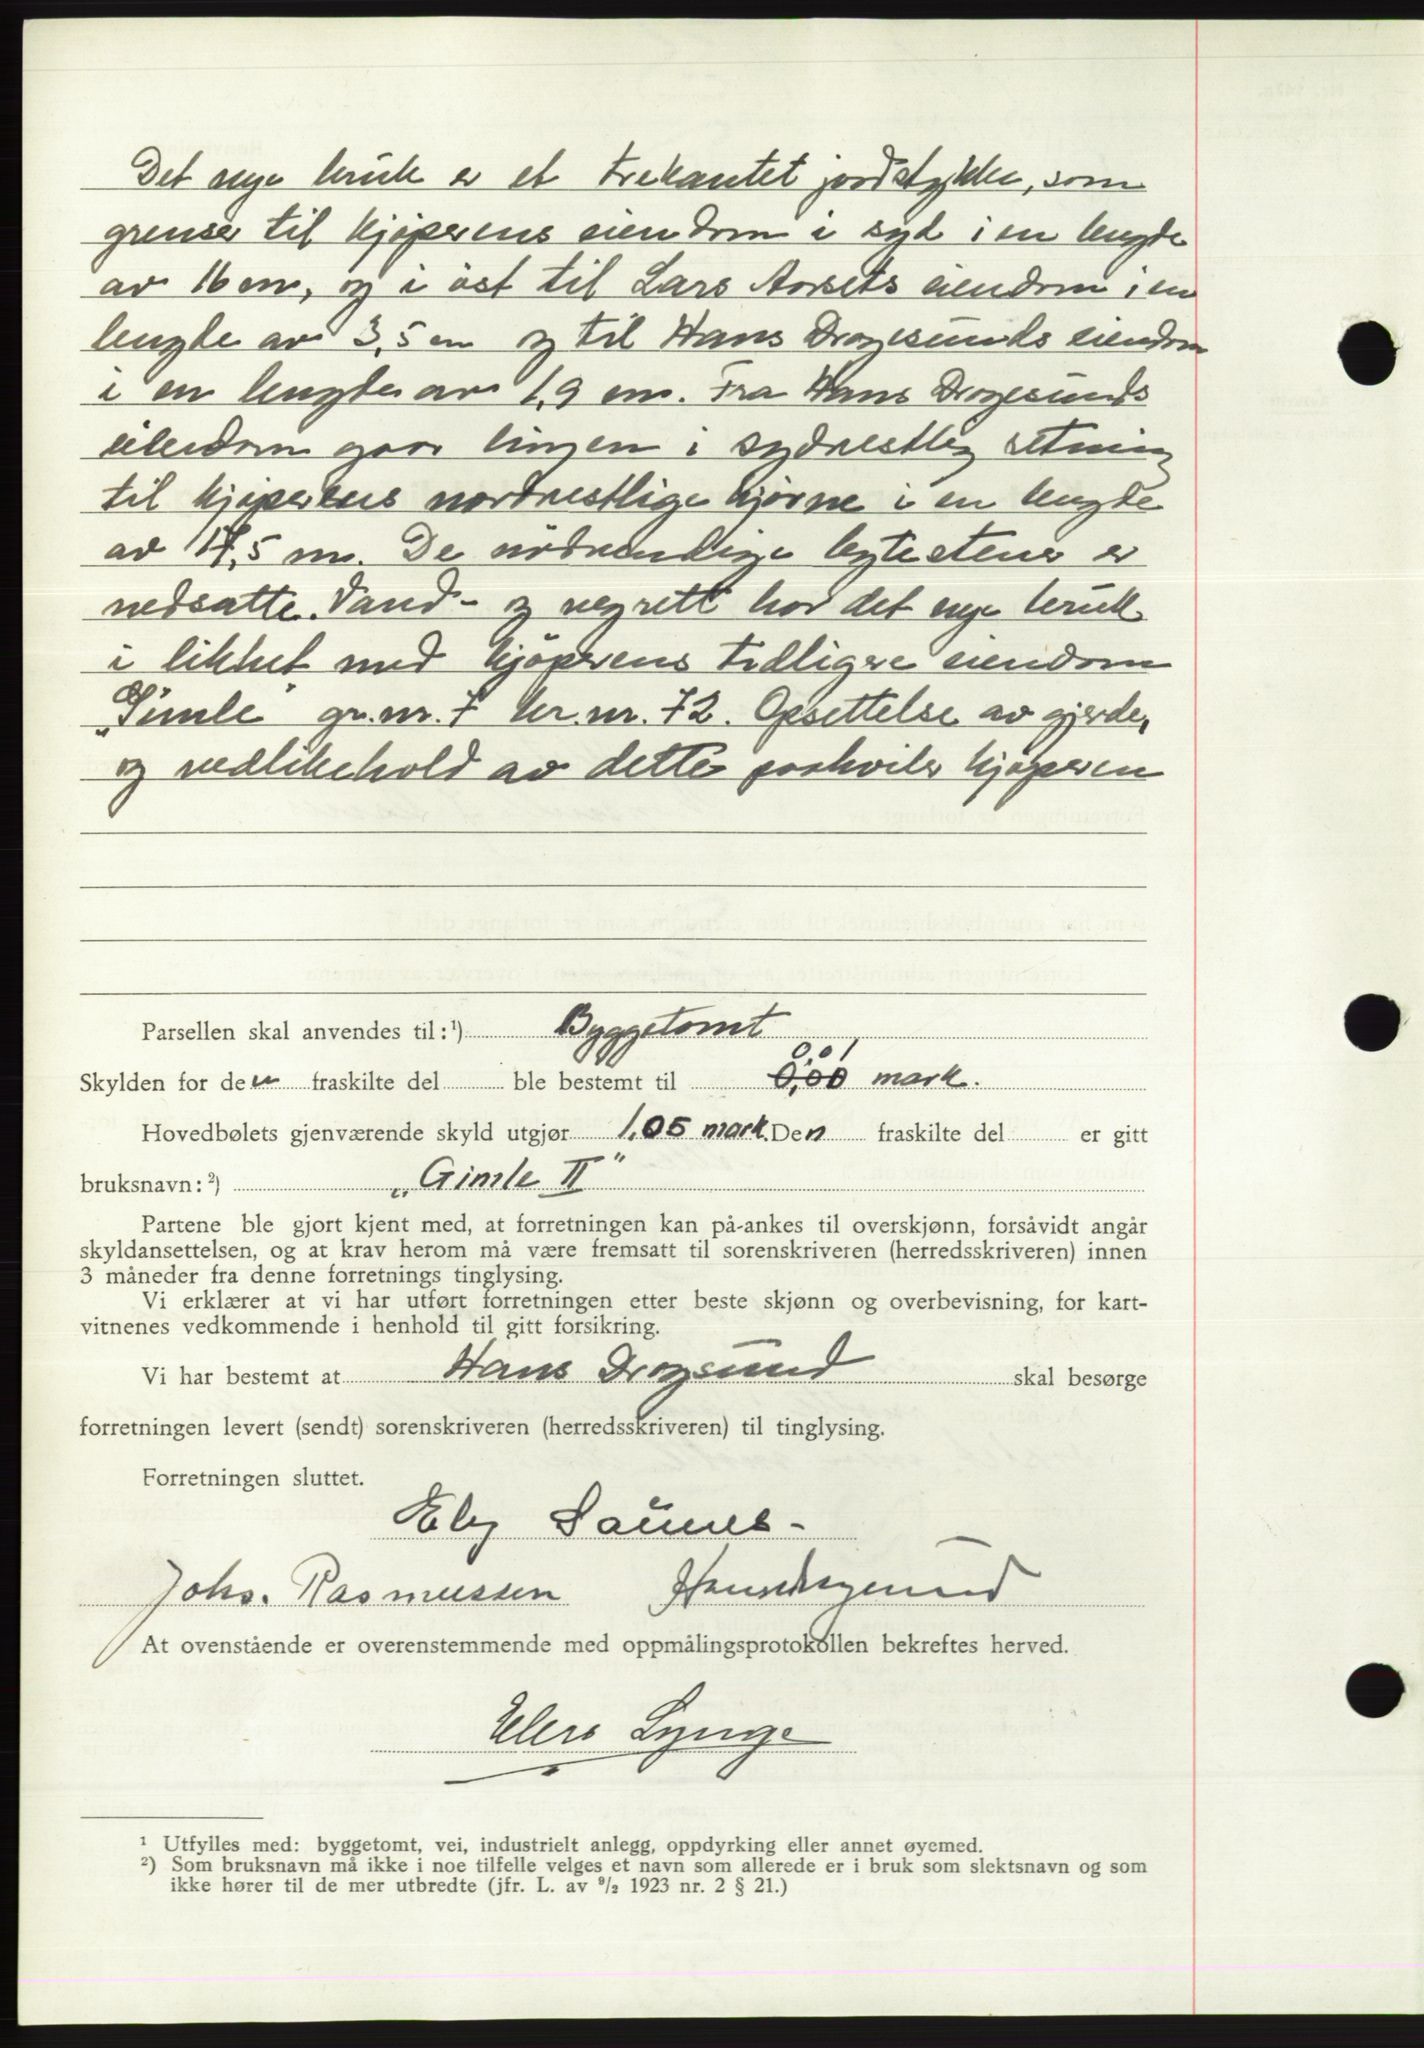 Det nye bruk er et trekantet jordstykke, som
grenser til kjøperens eiendom i syd i en lengde
av 16 m, og i øst til Lars Aarsets eiendom i en
lengde av 3,5 m og til Hans Drogesunds eiendom
i en lengde av 1,9 m. Fra Hans Drogesunds
eiendom gaar linjen i sydvestlig retning
til kjøperens nordvestlige hjørne i en lengde
av 17,5 m. De nödvendige bytestener er
nedsatte. Vand- og vegrett har det nye bruk
i likhet med kjöperens tidligere eiendom
„Gimle" gr.nr. 7 br.nr. 72. Opsettelse av gjerde,
og vedlikehold av dette paahviler kjøperen
Parsellen skal anvendes til: ¹) Byggetomt
0,01
Skylden for den fraskilte del ble bestemt til 0,00 mark.
Hovedbølets gjenværende skyld utgjør 1,05 mark. Den fraskilte del er gitt
bruksnavn: ²) „Gimle II"
Partene ble gjort kjent med, at forretningen kan på-ankes til overskjønn, forsåvidt angår
skyldansettelsen, og at krav herom må være fremsatt til sorenskriveren (herredsskriveren) innen
3 måneder fra denne forretnings tinglysing.
Vi erklærer at vi har utført forretningen etter beste skjønn og overbevisning, for kart-
vitnenes vedkommende i henhold til gitt forsikring.
Vi har bestemt at Hans Drogsund skal besørge
forretningen levert (sendt) sorenskriveren (herredsskriveren) til tinglysing.
Forretningen sluttet.
Johs. Rasmussen Hans Drogesund
At ovenstående er overenstemmende med oppmålingsprotokollen bekreftes herved.
Elers Lynge
¹ Utfylles med: byggetomt, vei, industrielt anlegg, oppdyrking eller annet øyemed.
²) Som bruksnavn må ikke i noe tilfelle velges et navn som allerede er i bruk som slektsnavn og som
ikke hører til de mer utbredte (jfr. L. av ⁹/₂ 1923 nr. 2 § 21.)